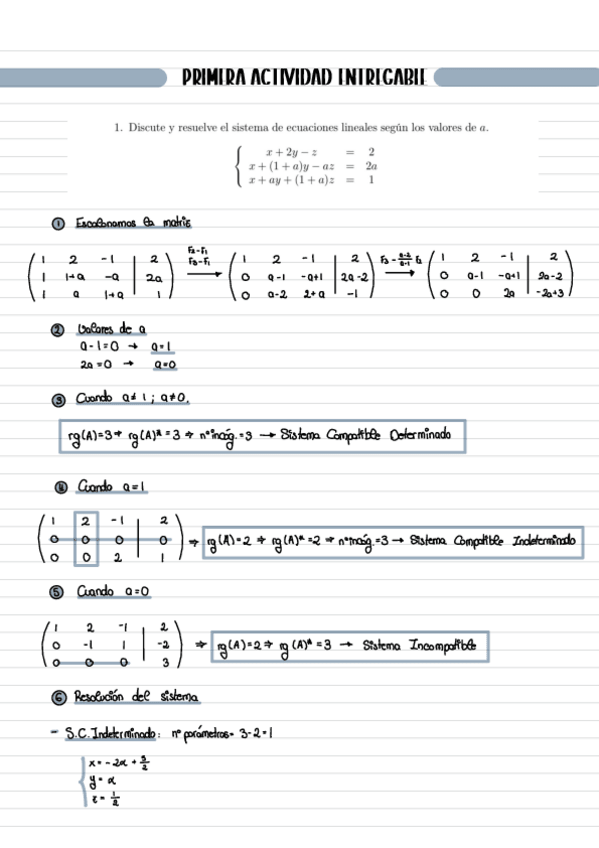 PRIMERA ACTIVIDAD ENTREGABLE
1. Discute y resuelve el sistema de ecuaciones lineales según los valores de a.
x + 2y − z = 2
x + (1 + a)y − az = 2a
x + ay + (1 + a)z = 1
① Escalonamos la matriz
F2-F1
F3-F1
F3 - a-2/a-1 F2
1 2 -1 | 2 1 2 -1 | 2 1 2 -1 | 2
1 1+a -a | 2a → 0 a-1 -a+1 | 2a-2 → 0 a-1 -a+1 | 2a-2
1 a 1+a | 1 0 a-2 2+a | -1 0 0 2a | -2a+3
② Valores de a
a-1=0 → a=1
2a=0 → a=0
③ Cuando a≠1 ; a≠0.
rg(A)=3 ⇒ rg(A)*=3 ⇒ nºincóg.=3 → Sistema Compatible Determinado
④ Cuando a=1
1 2 -1 | 2
0 0 0 | 0 ⇒ rg(A)=2 ⇒ rg(A)*=2 ⇒ nºincóg.=3 → Sistema Compatible Indeterminado
0 0 2 | 1
⑤ Cuando a=0
1 2 -1 | 2
0 -1 1 | -2 ⇒ rg(A)=2 ⇒ rg(A)*=3 → Sistema Incompatible
0 0 0 | 3
⑥ Resolución del sistema
- S.C. Indeterminado: nº parámetros= 3-2=1
x= -2α + 5/2
y= α
z= 1/2